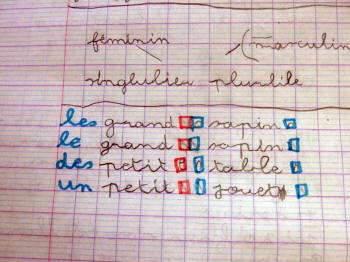 féminin (masculin
singhulieu pluriile
les grand sapin
le grand sapin
des petit table
un petit jouet